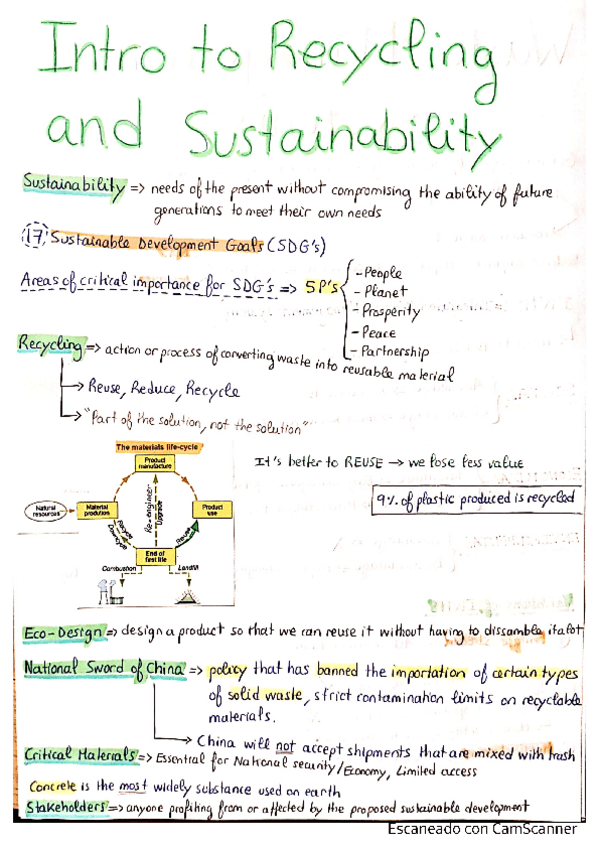 Intro to Recycling
and Sustainability
Sustainability => needs of the present without compromising the ability of future
generations to meet their own needs
17 Sustainable Development Goals (SDG's)
Areas of critical importance for SDG's => 5P's
- People
- Planet
- Prosperity
- Peace
- Partnership
Recycling => action or process of converting waste into reusable material
→ Reuse, Reduce, Recycle
→ "Part of the solution, not the solution"
The materials life-cycle
Product
manufacture
Natural
resources
Material
production
Product
use
Re-engineer
Upgrade
Recycle
Down-cycle
Reuse
End of
first life
Combustion
Landfill
It's better to REUSE → we lose less value
9% of plastic produced is recycled
Eco-Design => design a product so that we can reuse it without having to dissamble it alot
National Sword of China => policy that has banned the importation of certain types
of solid waste, strict contamination limits on recyclable
materials.
→ China will not accept shipments that are mixed with trash
Critical Materials => Essential for National security/Economy, Limited access
Concrete is the most widely substance used on earth
Stakeholders => anyone profiting from or affected by the proposed sustainable development
Escaneado con CamScanner